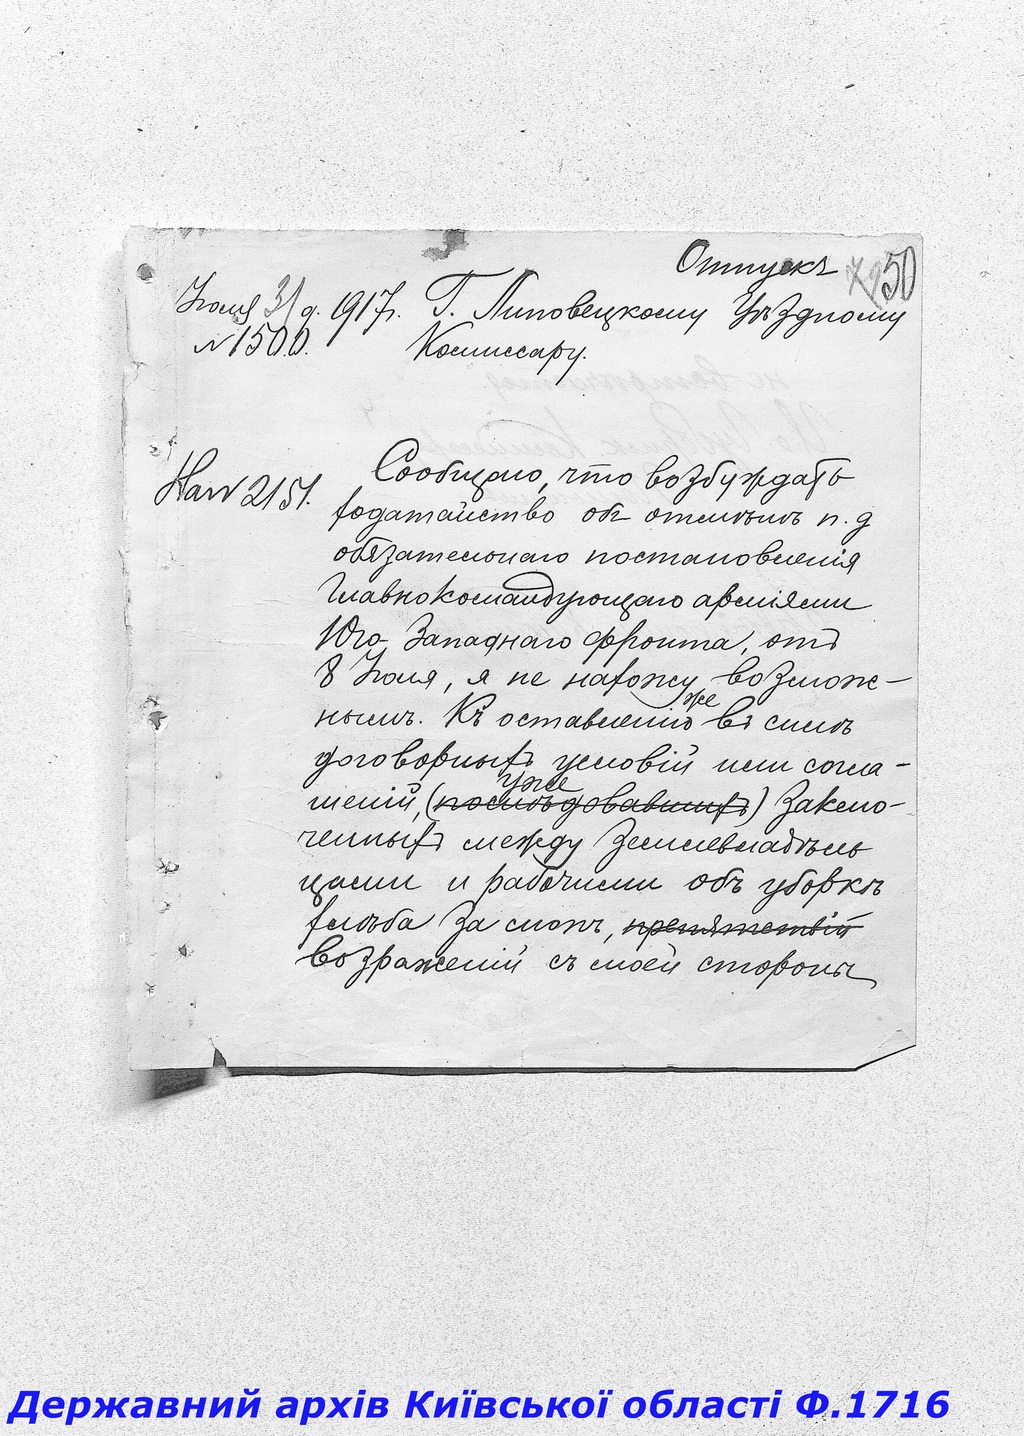 Отпускъ
50
Іюля 31 д. 1917 г. Г. Липовецкому Уѣздному
№ 1500. Комиссару.
На № 2151. Сообщаю, что возбуждать
ходатайство объ отмѣнѣ п. д
обязательнаго постановленія
Главнокомандующаго арміями
Юго-Западнаго фронта, отъ
8 Іюля, я не нахожу возмож-
нымъ. Къ оставленію же въ силѣ
договорныхъ условій или согла-
шеній, (послѣдовавшихъ) уже заклю-
ченныхъ между землевладѣль
цами и рабочими объ уборкѣ
хлѣба за снопъ, препятствій
возраженій съ моей стороны
Державний архів Київської області Ф.1716